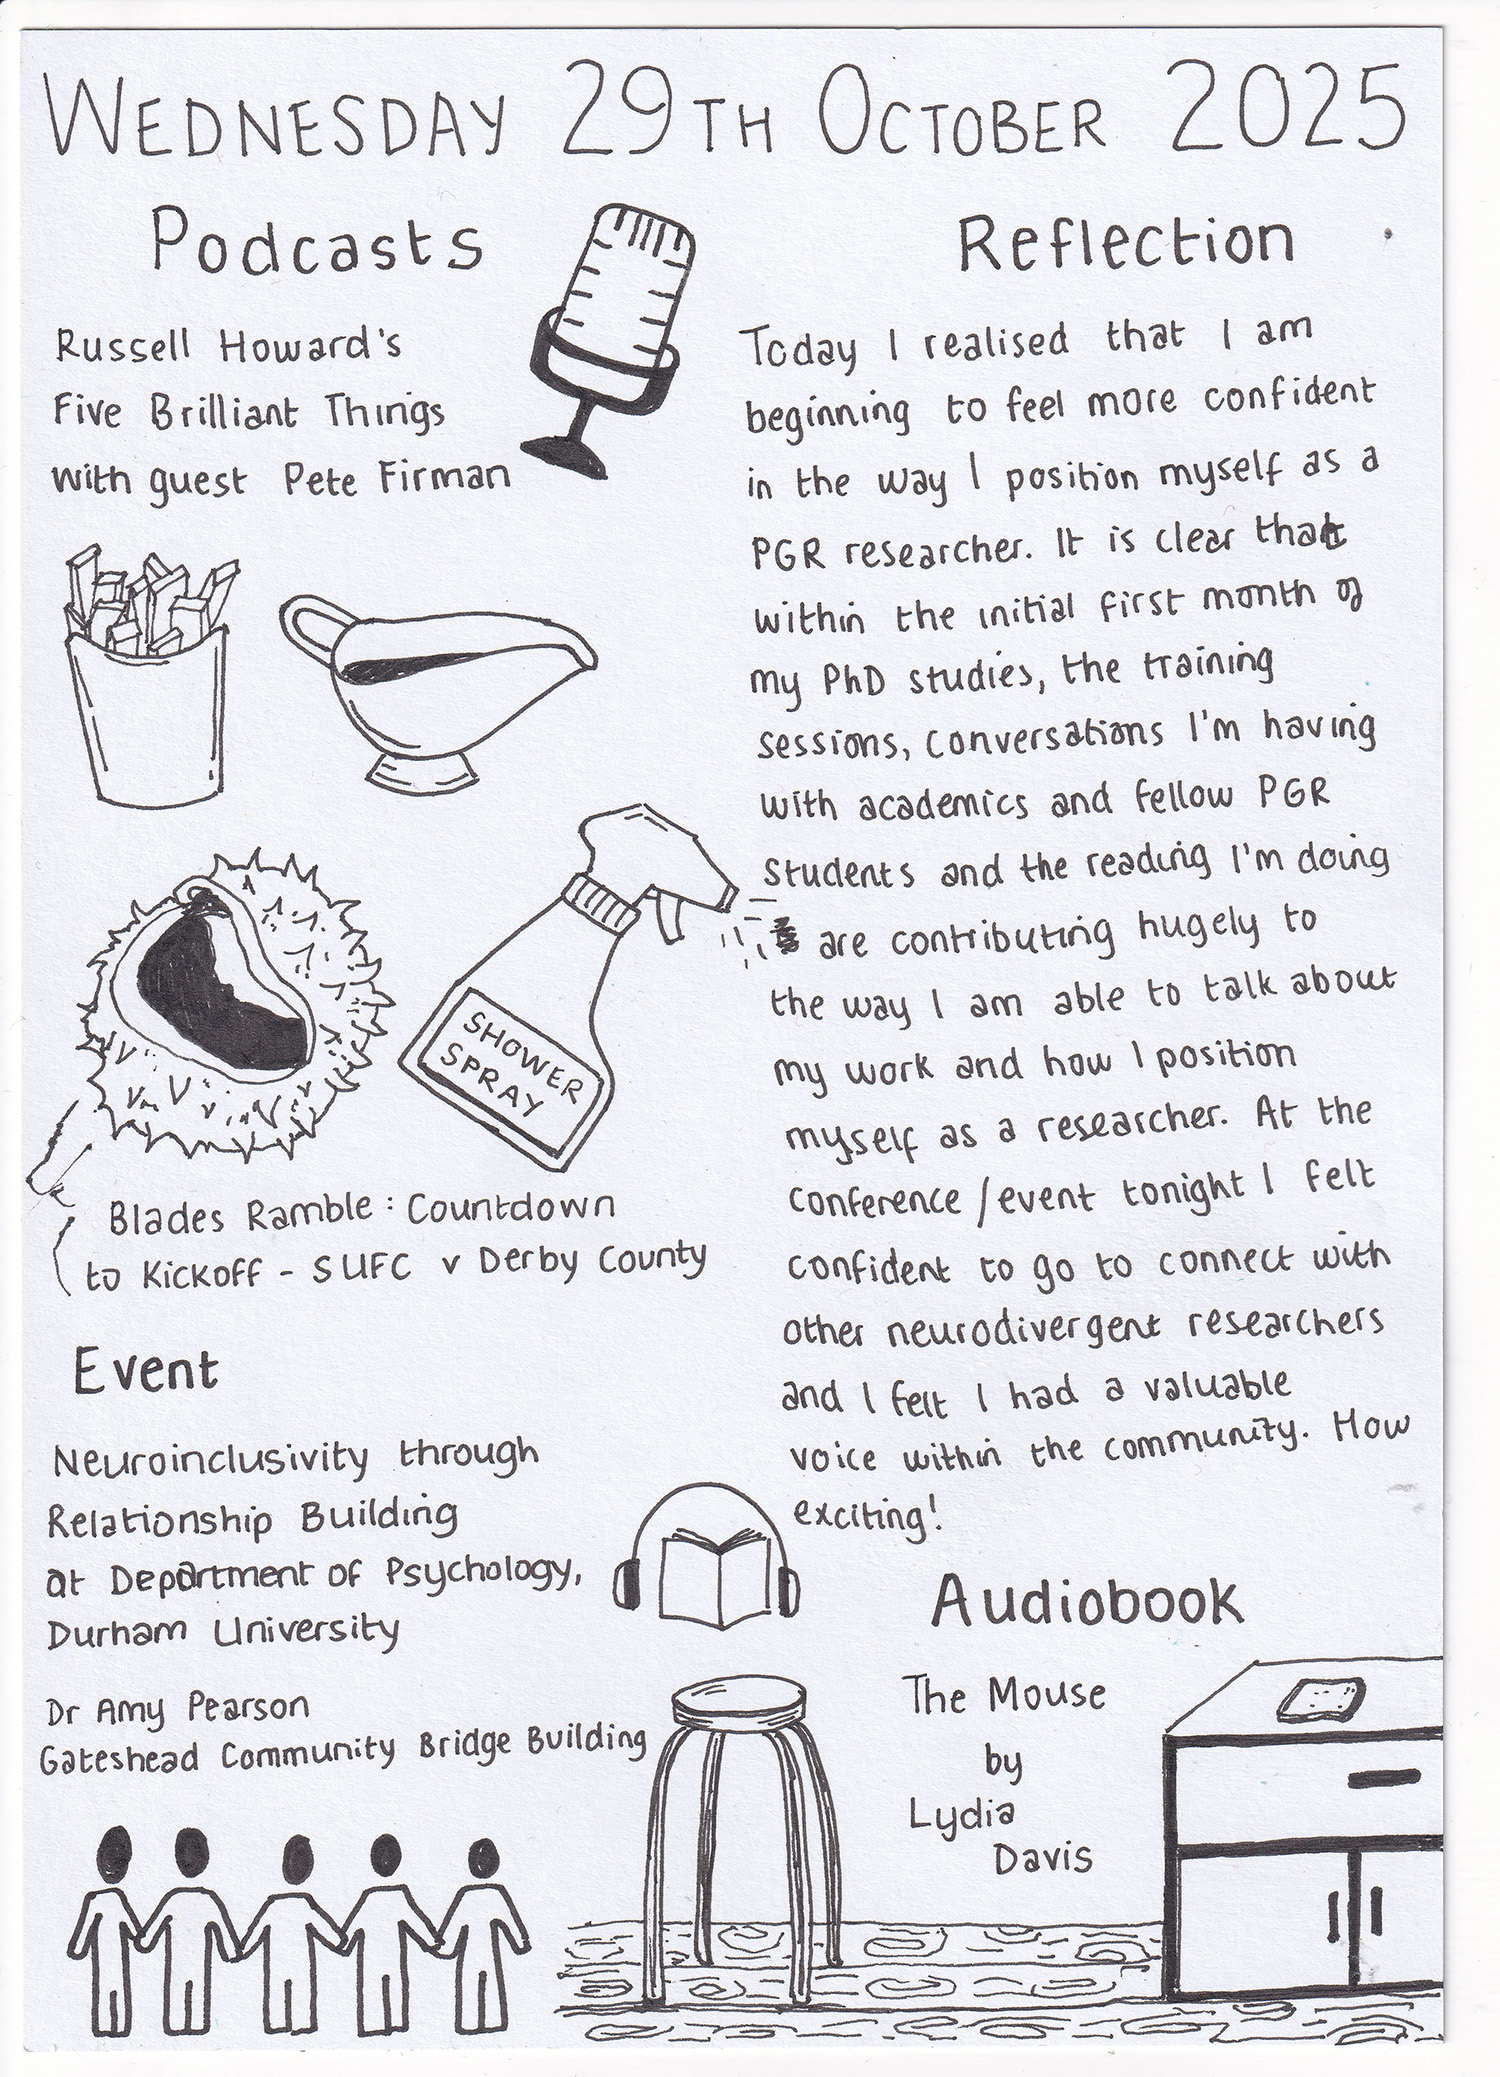 WEDNESDAY 29TH OCTOBER 2025
Podcasts
Russell Howard's
Five Brilliant Things
with guest Pete Firman
SHOWER
SPRAY
Blades Ramble: Countdown
to Kickoff - SUFC v Derby County
Event
Neuroinclusivity through
Relationship Building
at Department of Psychology,
Durham University
Dr Amy Pearson
Gateshead Community Bridge Building
Reflection
Today I realised that I am
beginning to feel more confident
in the way I position myself as a
PGR researcher. It is clear that
within the initial first month of
my PhD studies, the training
sessions, conversations I'm having
with academics and fellow PGR
students and the reading I'm doing
are contributing hugely to
the way I am able to talk about
my work and how I position
myself as a researcher. At the
conference/event tonight I felt
confident to go to connect with
other neurodivergent researchers
and I felt I had a valuable
voice within the community. How
exciting!
Audiobook
The Mouse
by
Lydia
Davis